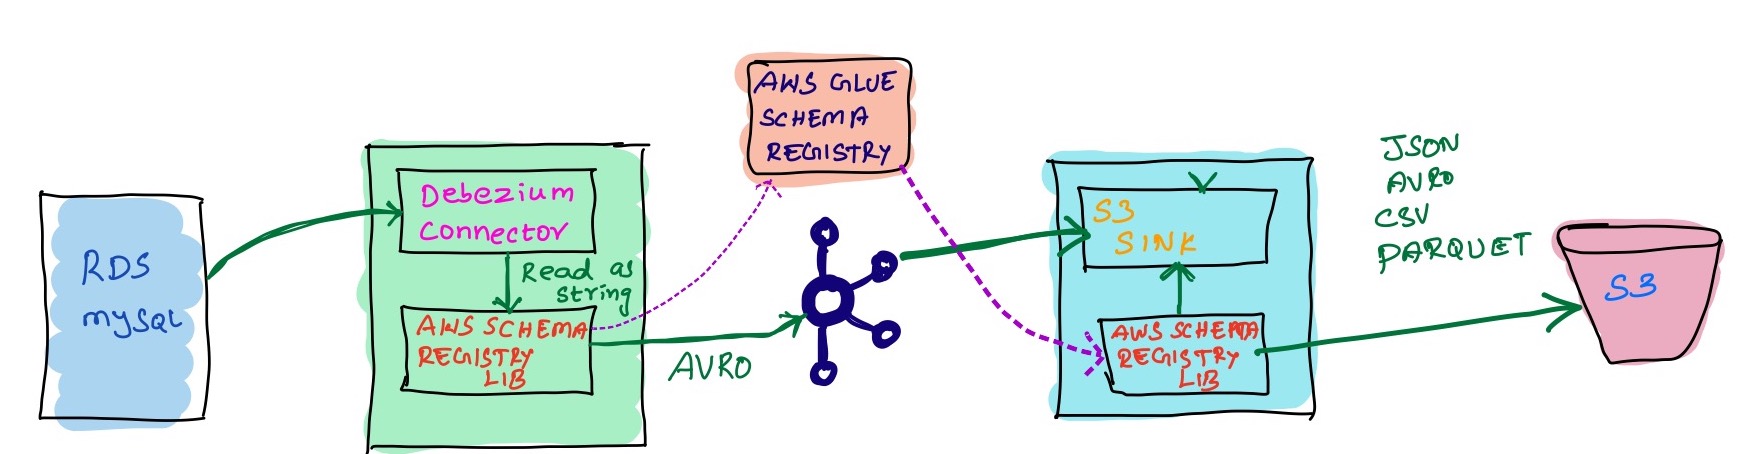 RDS
mySQL
Debezium
Connector
Read as
String
AWS SCHEMA
REGISTRY
LIB
AVRO
AWS GLUE
SCHEMA
REGISTRY
S3
SINK
AWS SCHEMA
REGISTRY
LIB
JSON
AVRO
CSV
PARQUET
S3